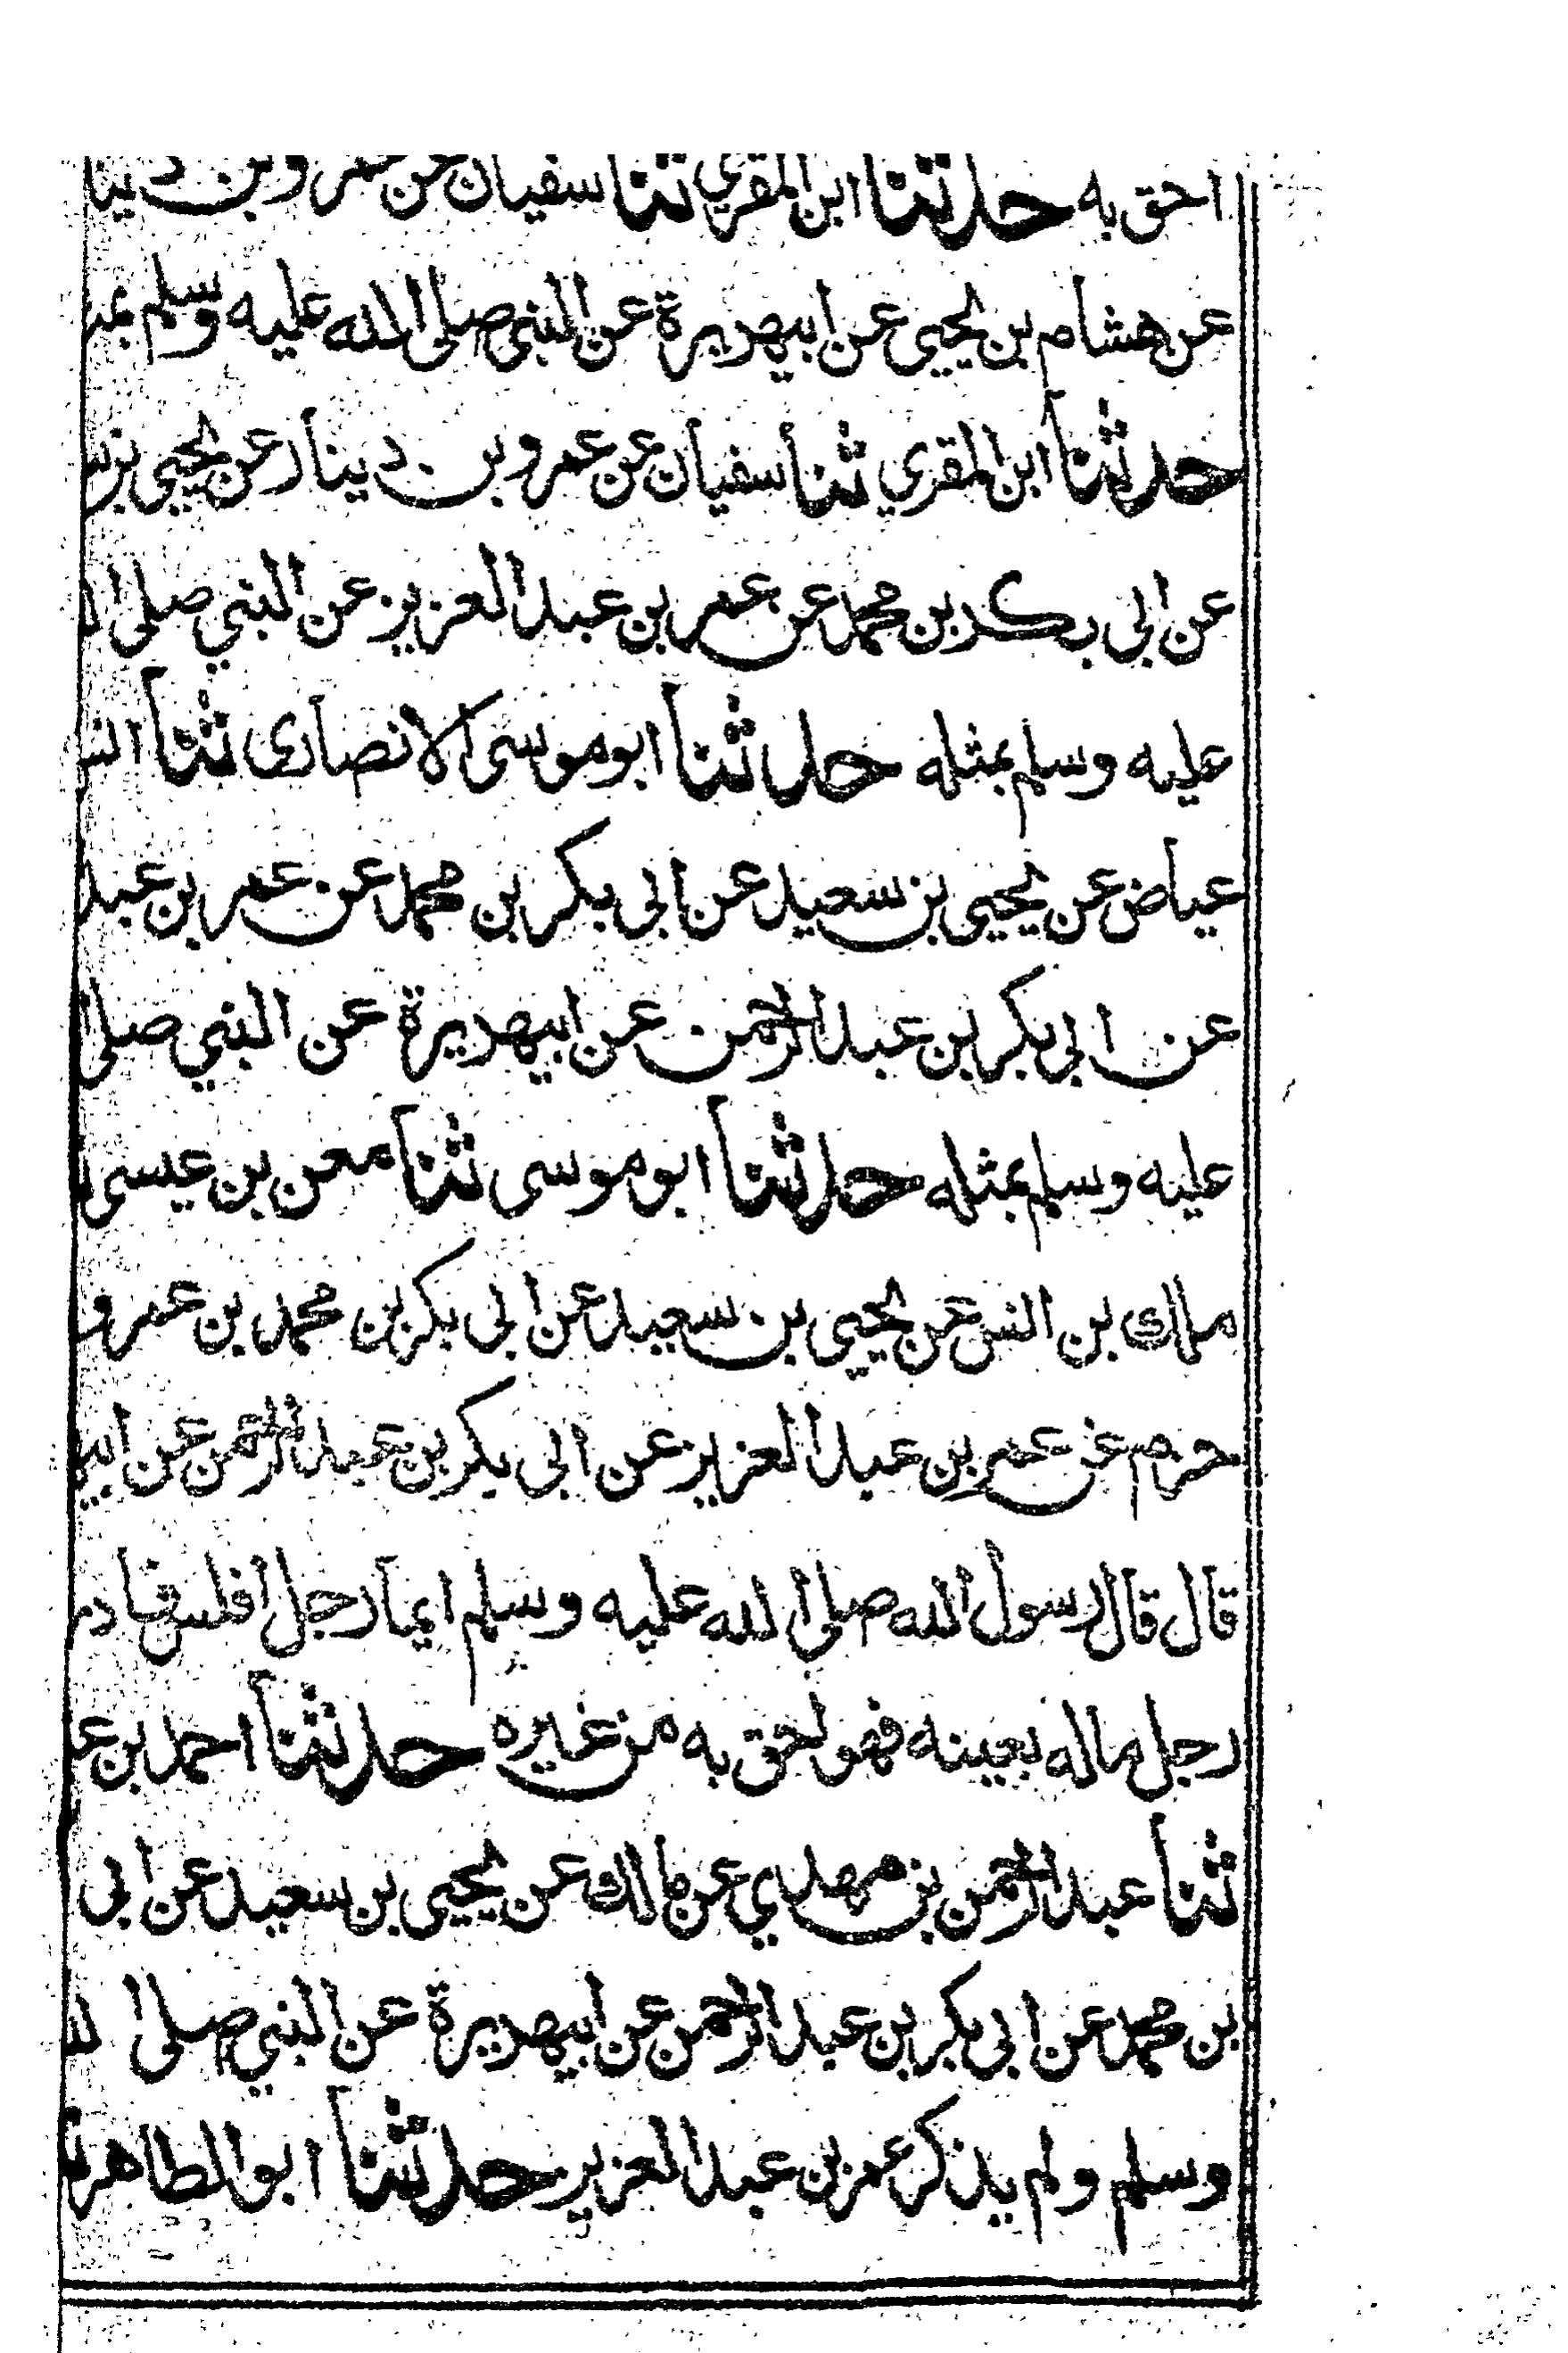 احق به حدثنا ابن المقري ثنا سفيان عن عمرو بن دينا
عن هشام بن يحيى عن ابيهريرة عن النبي صلى الله عليه وسلم
حدثنا ابن المقري ثنا سفيان عن عمرو بن دينار عن يحيى بن
عن ابي بكر بن محمد عن عمر بن عبد العزيز عن النبي صلى
عليه وسلم بمثله حدثنا ابو موسى الانصارى ثنا انس
عياض عن يحيى بن سعيد عن ابي بكر بن محمد عن عمر بن عبد
عن ابي بكر بن عبد الرحمن عن ابيهريرة عن النبي صلى
عليه وسلم بمثله حدثنا ابو موسى ثنا معن بن عيسى
ملك بن انس عن يحيى بن سعيد عن ابي بكر بن محمد بن عمرو
حزم عن عمر بن عبد العزيز عن ابي بكر بن عبد الرحمن عن ابيه
قال قال رسول الله صلى الله عليه وسلم ايما رجل افلس فادر
رجل ماله بعينه فهو احق به من غيره حدثنا احمد بن
ثنا عبد الرحمن بن مهدي عن مالك عن يحيى بن سعيد عن ابي
بن محمد عن ابي بكر بن عبد الرحمن عن ابيهريرة عن النبي صلى
وسلم ولم يذكر عمر بن عبد العزيز حدثنا ابو الطاهر